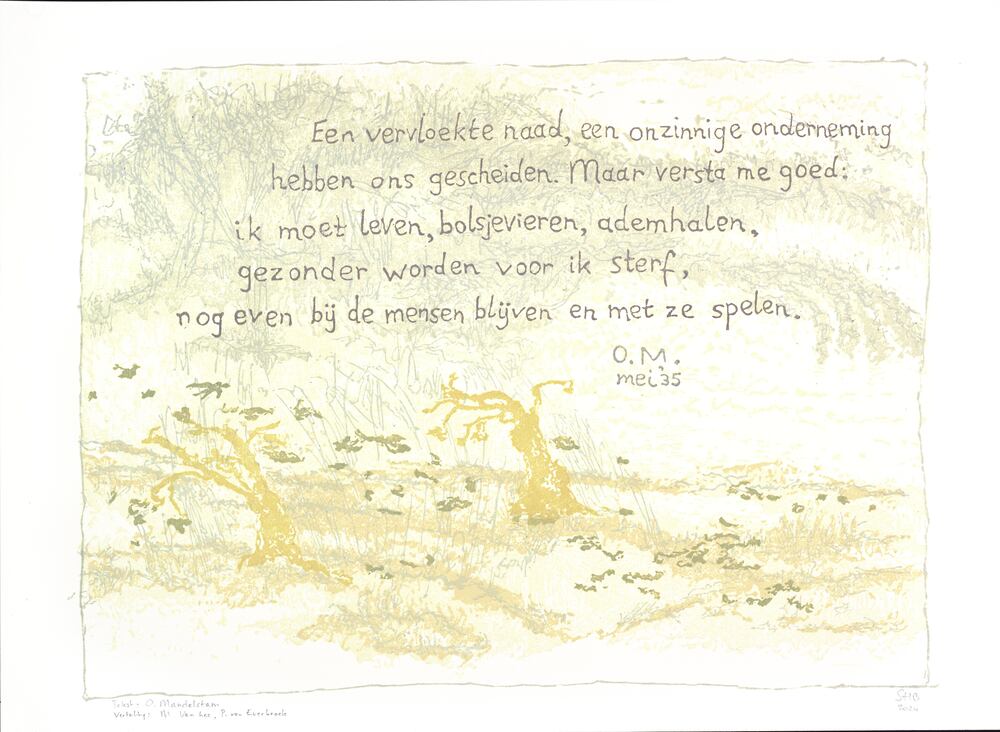 Een vervloekte naad, een onzinnige onderneming
hebben ons gescheiden. Maar versta me goed:
ik moet leven, bolsjevieren, ademhalen,
gezonder worden voor ik sterf,
nog even bij de mensen blijven en met ze spelen.
O.M.
mei '35
Tekst: O. Mandelstam
Vertaling: Van hee, P. van
2024